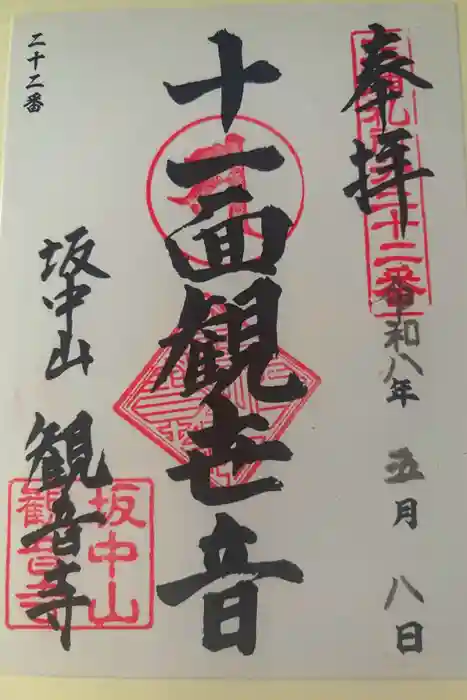 奉拝
令和八年 五月 八日
十一面観世音
坂中山 観音寺
二十二番
二十二番
坂中山
観音寺